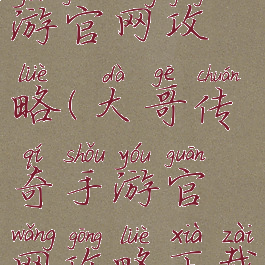 游官网攻
lüè dà gē chuán
略(大哥传
qí shǒu yóu guān
奇手游官
wǎng gōng lüè xià zài
网攻略下载